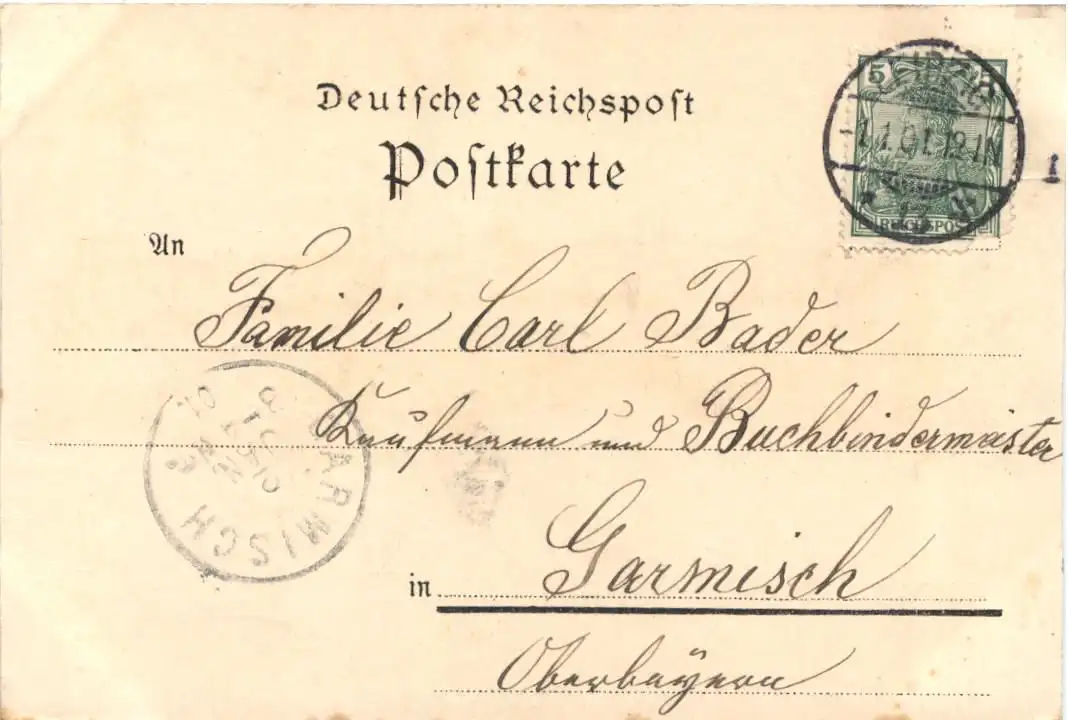 Deutsche Reichspost
Postkarte
5
LEIPZIG
1.1.01.12-1N
13
REICHSPOST
1
An
Familie Carl Bader
Kaufmann und Buchbindermeister
GARMISCH
JAN
01
in Garmisch
Oberbayern